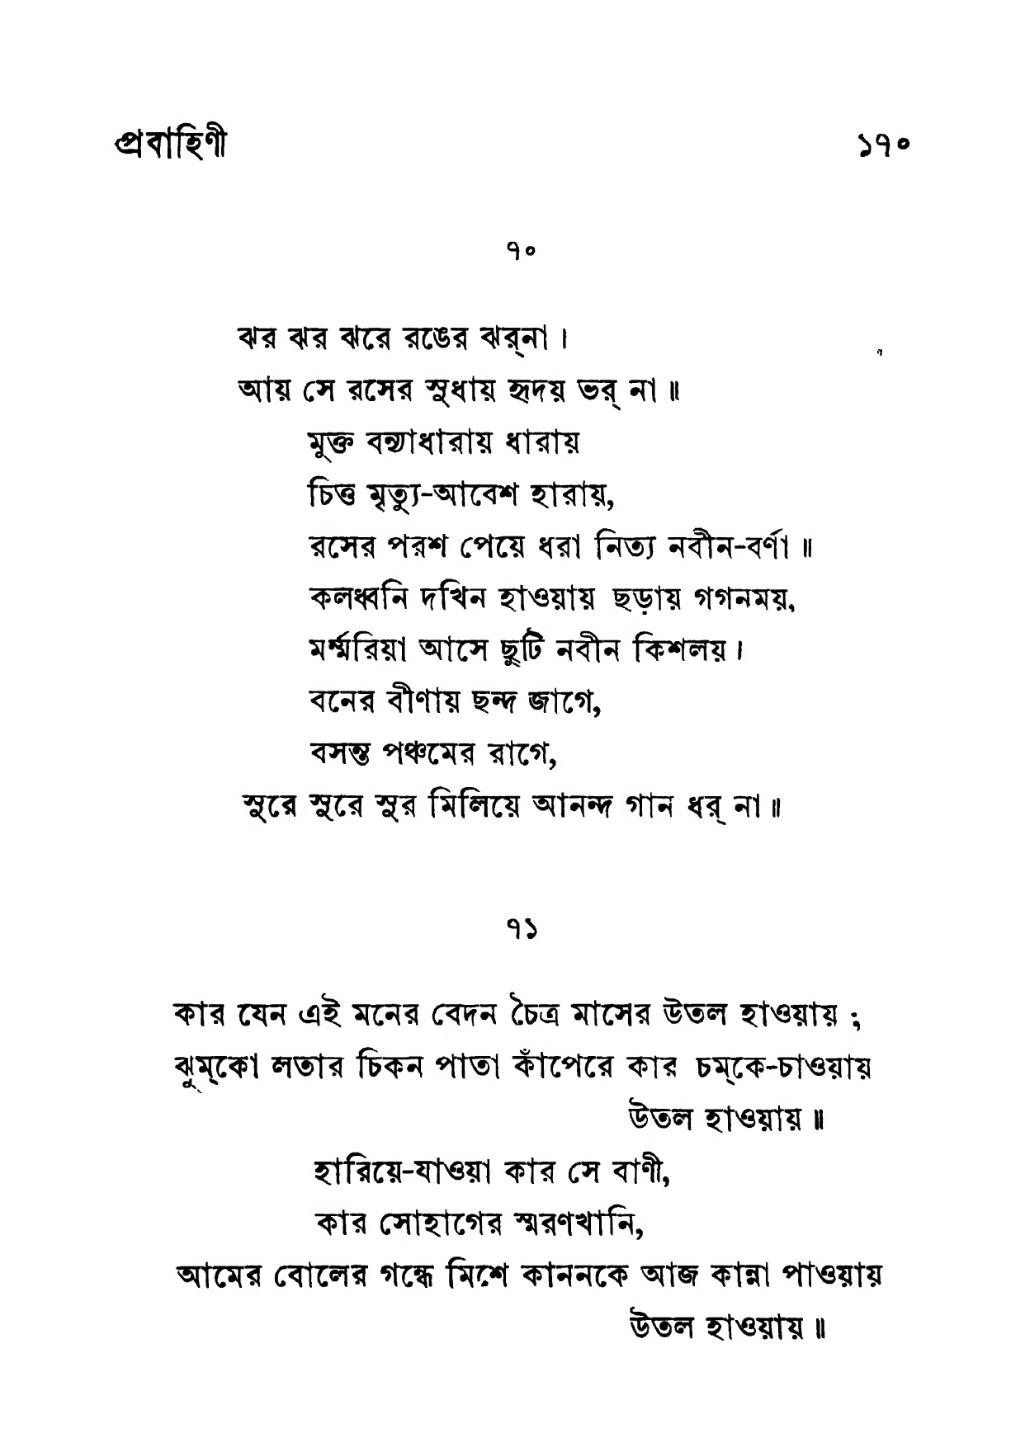 প্রবাহিণী ১৭০
৭০
ঝর ঝর ঝরে রঙের ঝর্‌না।
আয় সে রসের সুধায় হৃদয় ভর্ না॥
মুক্ত বন্যাধারায় ধারায়
চিত্ত মৃত্যু-আবেশ হারায়,
রসের পরশ পেয়ে ধরা নিত্য নবীন-বর্ণা॥
কলধ্বনি দখিন হাওয়ায় ছড়ায় গগনময়,
মর্ম্মরিয়া আসে ছুটি নবীন কিশলয়।
বনের বীণায় ছন্দ জাগে,
বসন্ত পঞ্চমের রাগে,
সুরে সুরে সুর মিলিয়ে আনন্দ গান ধর্ না॥
৭১
কার যেন এই মনের বেদন চৈত্র মাসের উতল হাওয়ায়;
ঝুম্‌কো লতার চিকন পাতা কাঁপেরে কার চম্‌কে-চাওয়ায়
উতল হাওয়ায়॥
হারিয়ে-যাওয়া কার সে বাণী,
কার সোহাগের স্মরণখানি,
আমের বোলের গন্ধে মিশে কাননকে আজ কান্না পাওয়ায়
উতল হাওয়ায়॥